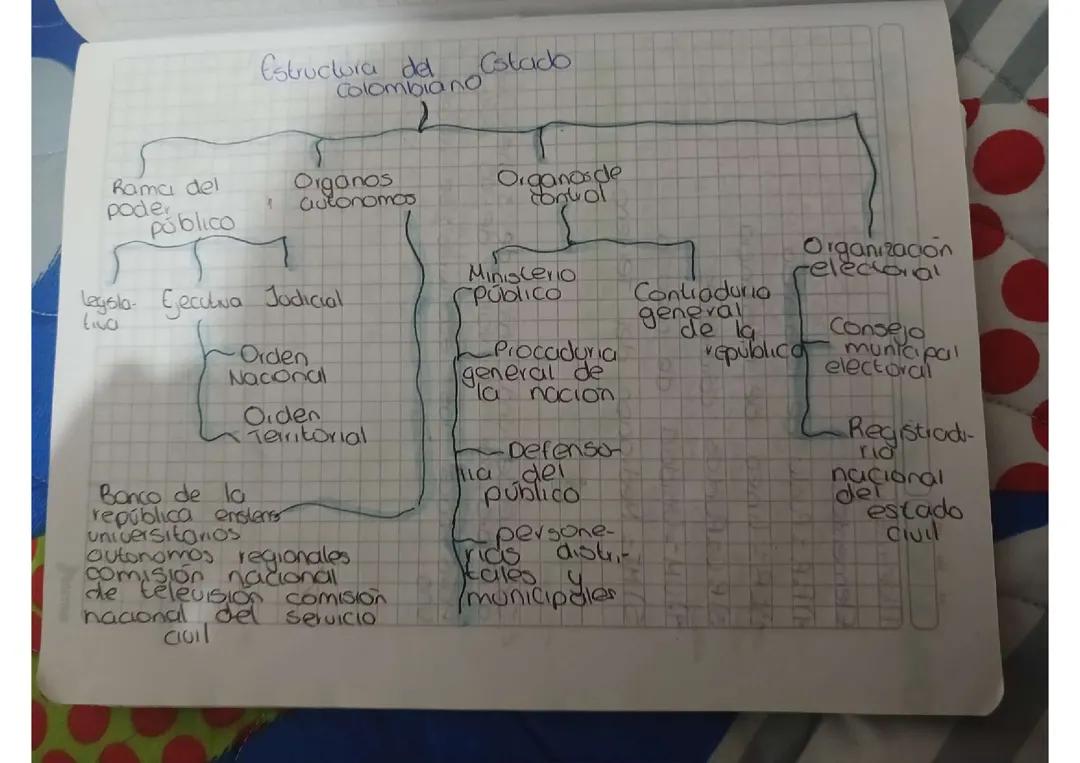 Estructura del Estado
colombiano
Rama del
poder
público
Organos
autonomos
Organos de
control
Organización
electoral
Legisla-
tiva
Ejecutiva
Judicial
Orden
Nacional
Orden
Territorial
Banco de la
república
universitarios
autonomos regionales
comisión nacional
de televisión comisión
nacional del servicio
civil
Ministerio
público
Procaduria
general de
la nacion
Defenso-
ria del
público
persone-
rias distri-
tales y
municipales
Contraduria
general
de la
república
Consejo
municipal
electoral
Registradu-
ria
nacional
del
estado
civil